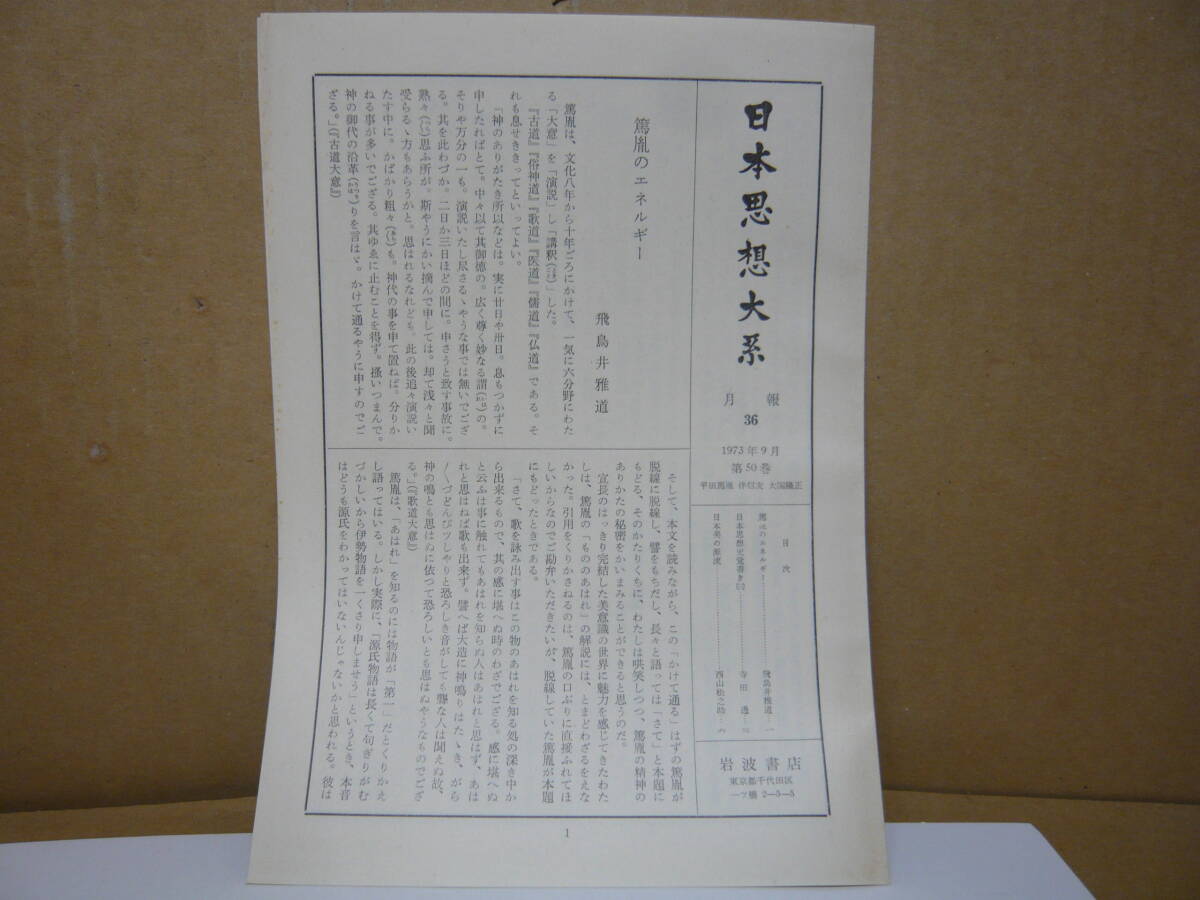 日本思想大系
月報
36
1973年9月
第50巻
平田篤胤 伴信友 大国隆正
目次
篤胤のエネルギー……飛鳥井雅道…一
日本思想史覚書き……寺田透…三
日本美の源流……西山松之助…六
岩波書店
東京都千代田区
一ツ橋 2—5—5
篤胤のエネルギー
飛鳥井雅道
篤胤は、文化八年から十年ごろにかけて、一気に六分野にわた
る「大意」を「演説」し「講釈」した。
『古道』『俗神道』『歌道』『医道』『儒道』『仏道』である。そ
れも息せききってといってよい。
「神のありがたき所以などは。実に廿日や卅日。息もつかずに
申したればとて。中々以て其御徳の。広く尊く妙なる謂の。
そりや万分の一も。演説いたし尽さるゝやうな事では無いでござ
る。其を此わづか。二日か三日ほどの間に。申さうと致す事故に。
熟々思ふ所が。斯やうにかい摘んで申しては。却て浅々と聞
受らるゝ方もあらうかと。思はれるなれども。此の後追々演説い
たす中に。かばかり粗々も。神代の事を申て置ねば。分りか
ねる事が多いでござる。其ゆゑに止むことを得ず。搔いつまんで。
神の御代の沿革りを言はゞ。かけて通るやうに申すのでご
ざる。」(『古道大意』)
そして、本文を読みながら、この「かけて通る」はずの篤胤が
脱線に脱線し、譬をもちだし、長々と語っては「さて」と本題に
もどる、そのかたりくちに、わたしは哄笑しつつ、篤胤の精神の
ありかたの秘密をかいまみることができると思うのだ。
宣長のはっきり完結した美意識の世界に魅力を感じてきたわた
しは、篤胤の「もののあはれ」の解説には、とまどわざるをえな
かった。引用をくりかさねるのは、篤胤の口ぶりに直接ふれてほ
しいからなのでご勘弁いただきたいが、脱線していた篤胤が本題
にもどったときである。
「さて、歌を詠み出す事はこの物のあはれを知る処の深き中か
ら出来るもので、其の感に堪へぬ時のわざでござる。感に堪へぬ
と云ふは事に触れてもあはれを知らぬ人はあはれと思はず、あは
れと思はねば歌も出来ず。譬へば大造に神鳴りはたゝき、がら
〳〵づどんぴツしやりと恐ろしき音がしても聾な人は聞えぬ故、
神の鳴とも思はぬに依つて恐ろしいとも思はぬやうなものでござ
る。」(『歌道大意』)
篤胤は、「あはれ」を知るのには物語が「第一」だとくりかえ
し語ってはいる。しかし実際に、「源氏物語は長くて句ぎりがむ
づかしいから伊勢物語を一くさり申しませう」というとき、本音
はどうも源氏をわかってはいないんじゃないかと思われる。彼は
1